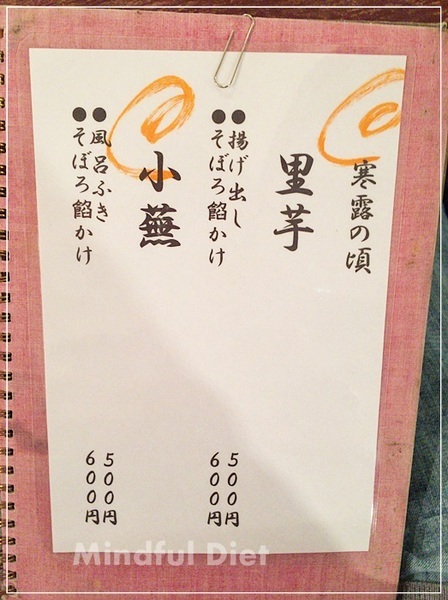 寒露の頃
里芋
●揚げ出し 500円
●そぼろ餡かけ 600円
小蕪
●風呂ふき 500円
●そぼろ餡かけ 600円
Mindful Diet